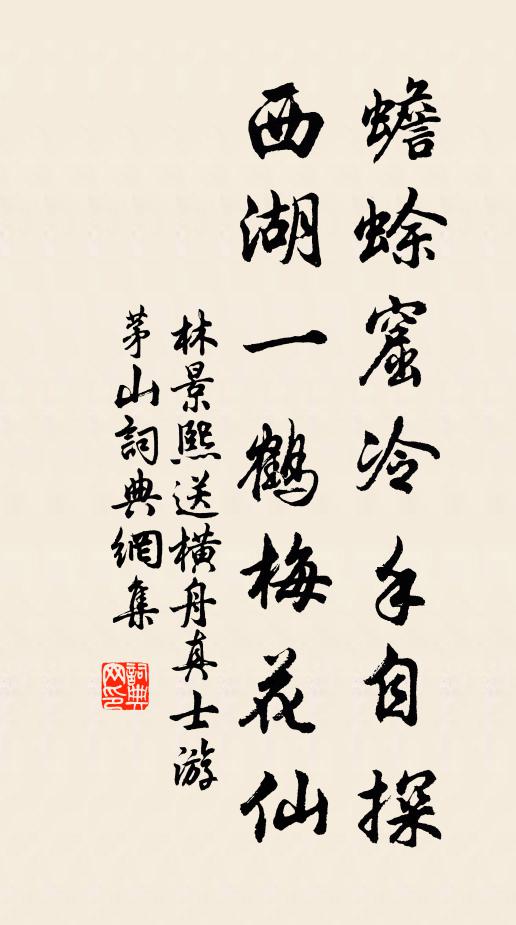 蟾蜍窟冷手自探
西湖一鶴梅花仙
林景熙送橫舟真士游
茅山詞典網集
詞典
網印